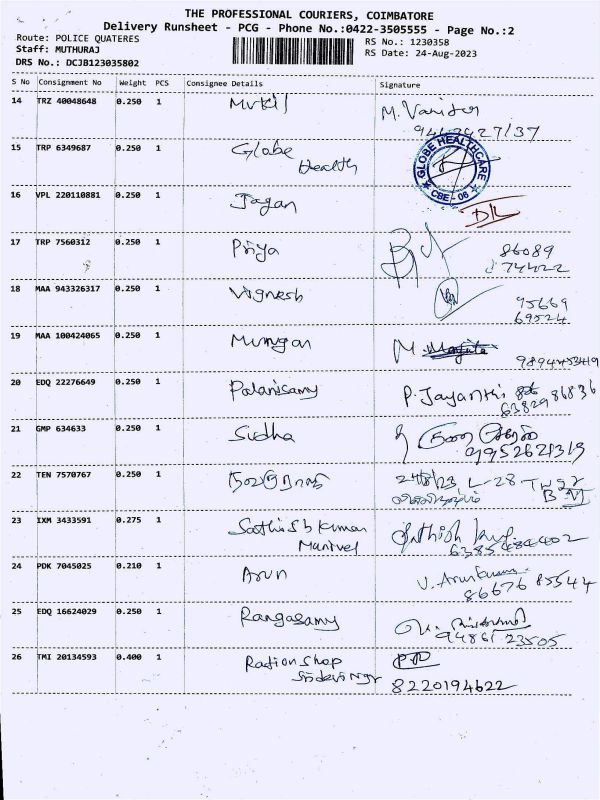 THE PROFESSIONAL COURIERS, COIMBATORE
Delivery Runsheet - PCG - Phone No.:0422-3505555 - Page No.:2
Route: POLICE QUATERES RS No.: 1230358
Staff: MUTHURAJ RS Date: 24-Aug-2023
DRS No.: DCJB123035802
S No Consignment No Weight PCS Consignee Details Signature
14 TRZ 40048648 0.250 1 Mukil M.
15 TRP 6349687 0.250 1 Globe
Health
GLOBE HEALTHCARE
CBE - 06
16 VPL 220110881 0.250 1 Jagan
17 TRP 7560312 0.250 1 Priya 86089
74422
18 MAA 943326317 0.250 1 Vignesh 95669
69524
19 MAA 100424065 0.250 1 Murugan M.
9894453419
20 EDQ 22276649 0.250 1 Palanisamy P. Jayanthi
63829 86836
21 GMP 634633 0.250 1 Sudha
9952621319
22 TEN 7570767 0.250 1 24/8/23 L-28
23 IXM 3433591 0.275 1 Sathish kumar
Manivel 6385484402
24 PDK 7045025 0.210 1 Arun V. Arunkumar
86676 85544
25 EDQ 16624029 0.250 1 Rangasamy
94861 23505
26 TMI 20134593 0.400 1 Ration Shop
8220194622